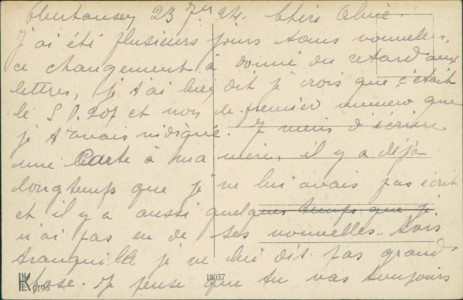 Oberhausen 23 7er 24. Chère Aimée.
J'ai été plusieurs jours sans nouvelles,
ce changement a donné du retard aux
lettres, je t'ai bien dit je crois que c'était
le S P. 207 et non le premier numero que
je t'avais indiqué. Je viens d'écrire
une Carte à ma mère, il y a déjà
longtemps que je ne lui avais pas écrit
et il y a aussi quelques temps que je
n'ai pas eu de ses nouvelles. Sois
tranquille je ne lui dit pas grand
chose. Je pense que tu vas toujours
18037